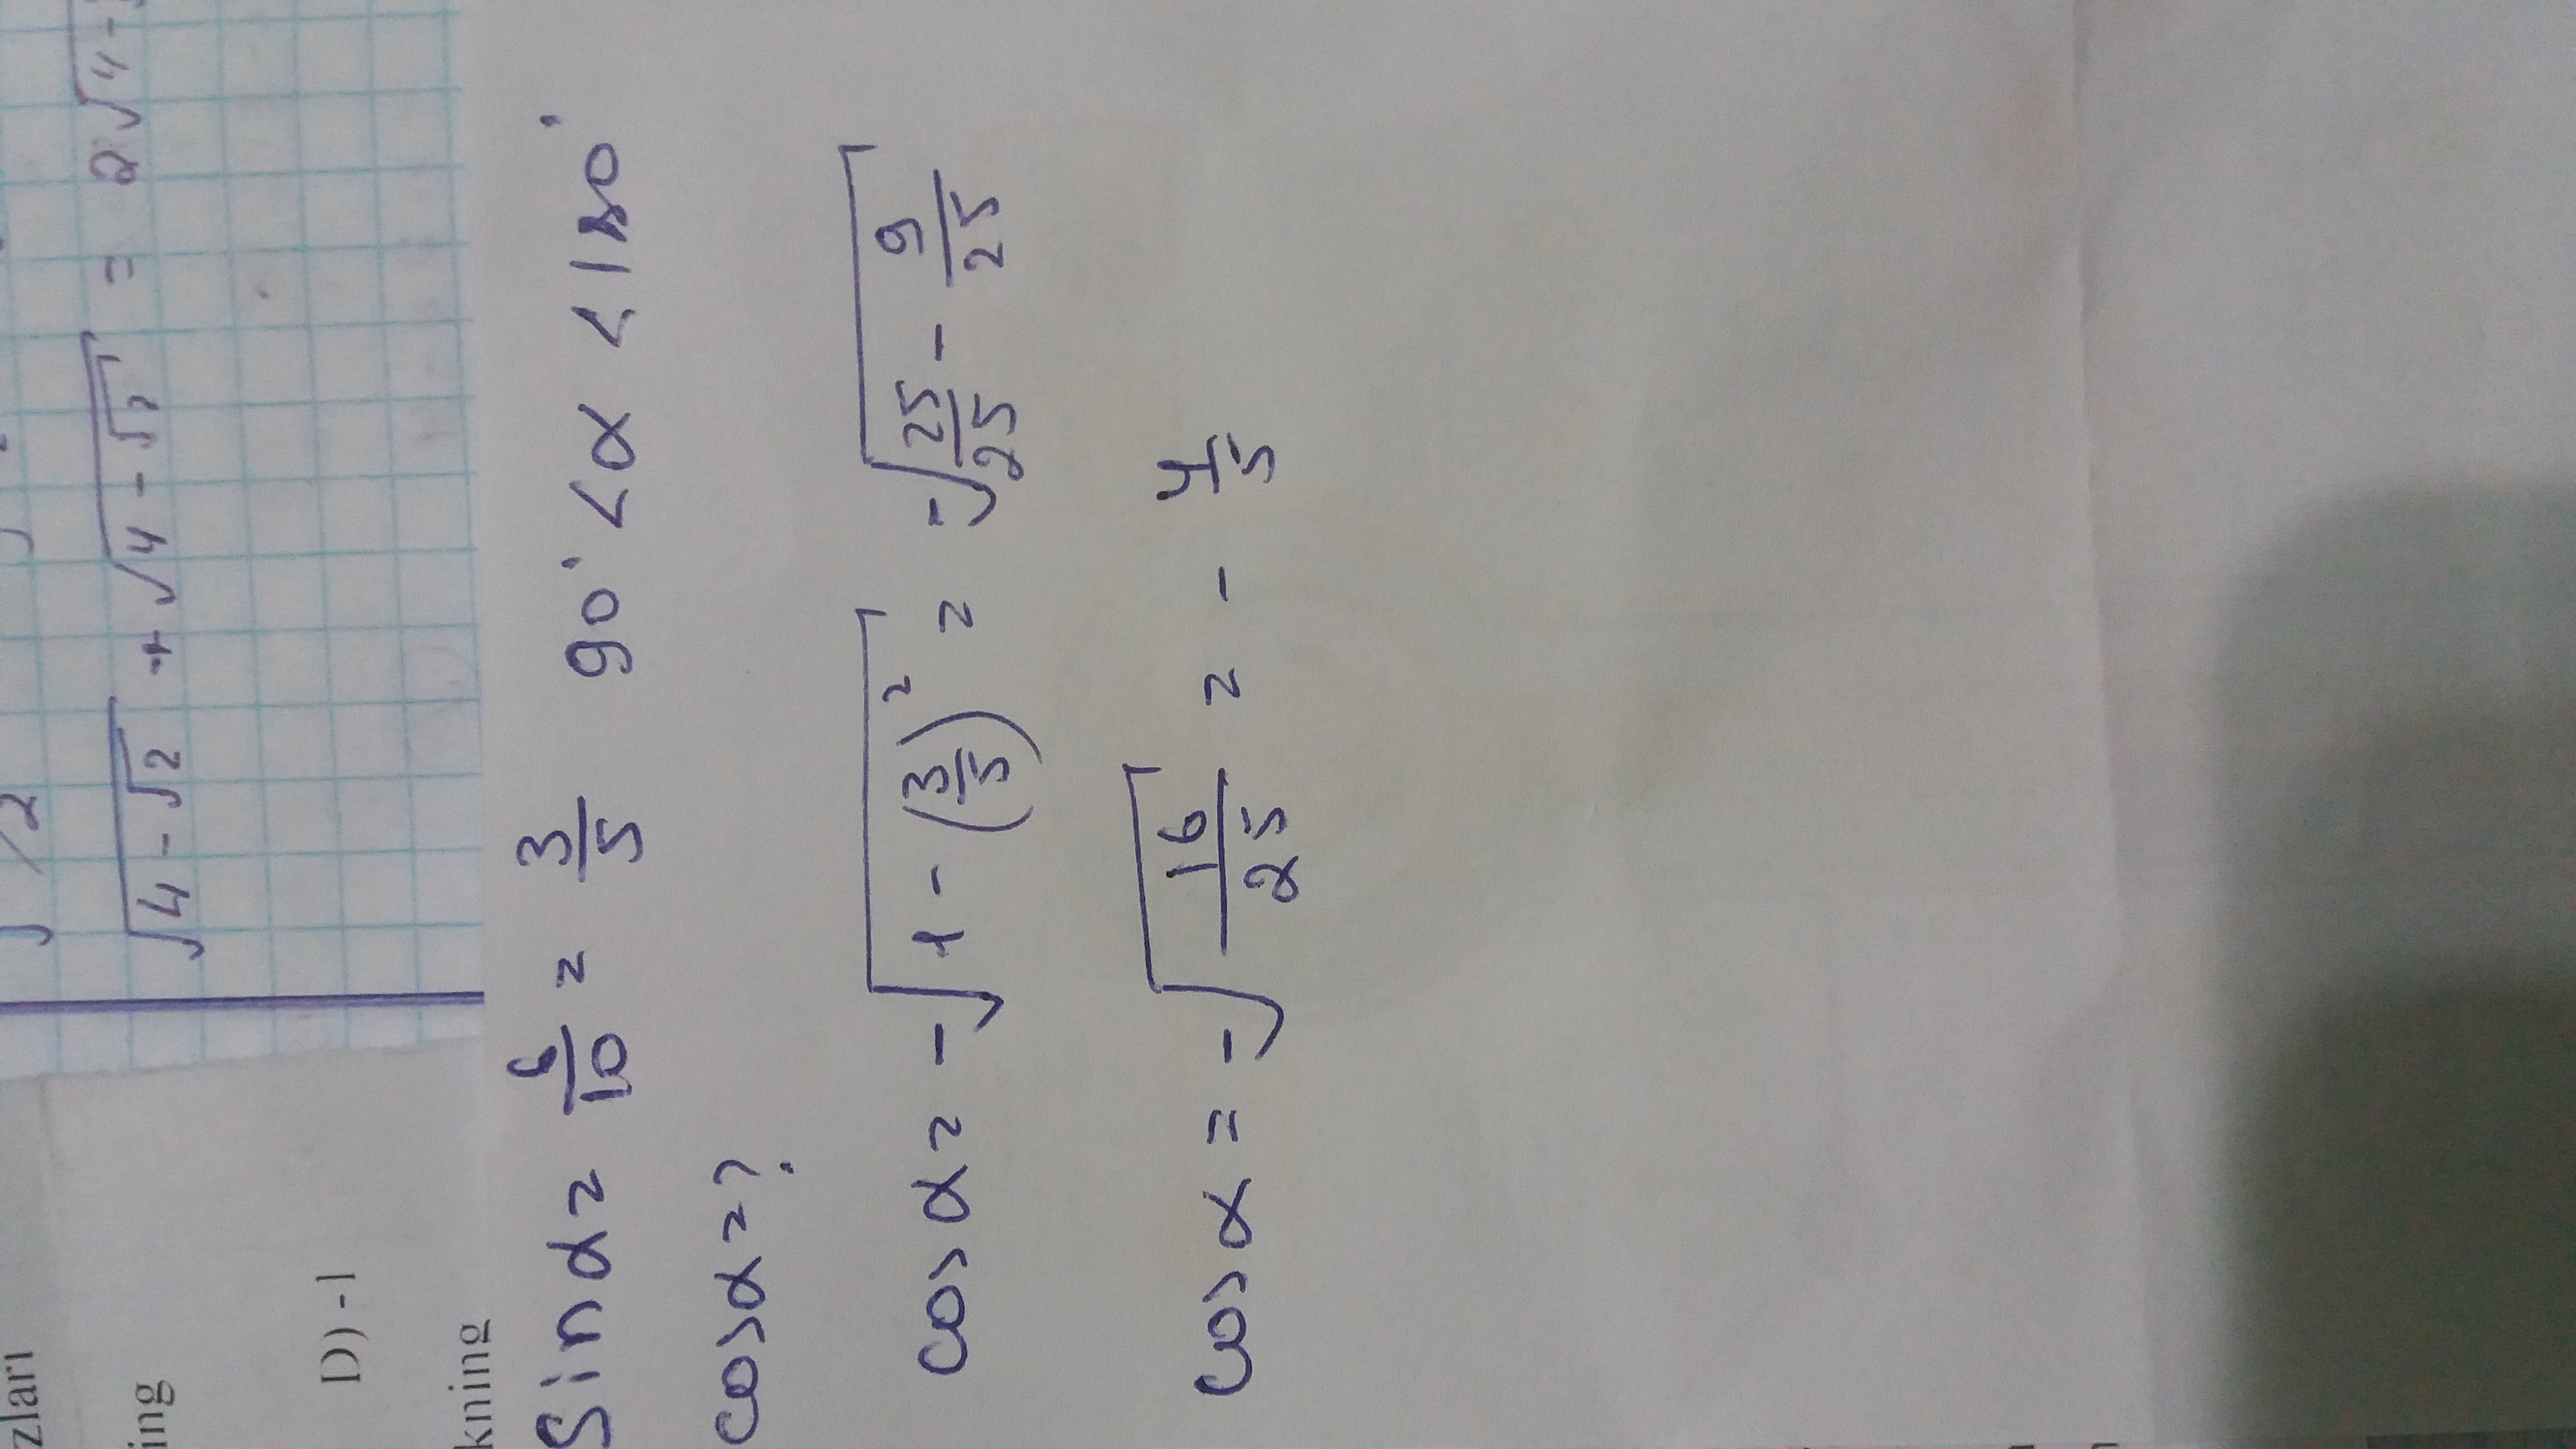 √(4-√2) + √(4-√2) = 2√4-
zları
ing
D) -1
kning
Sinα = 6/10 = 3/5 90° < α < 180°
cosα = ?
cosα = -√(1-(3/5)²) = -√(25/25 - 9/25)
cosα = -√(16/25) = -4/5